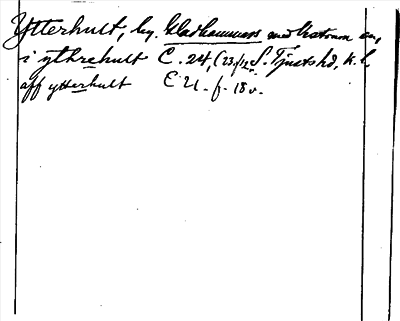 Ytterhult, by. Gladhammars med Västrum sn,
i ythrehult C. 24, (23/12 S. Tjusts hd, K. l.
aff ytterhult C 21. f. 18 v.